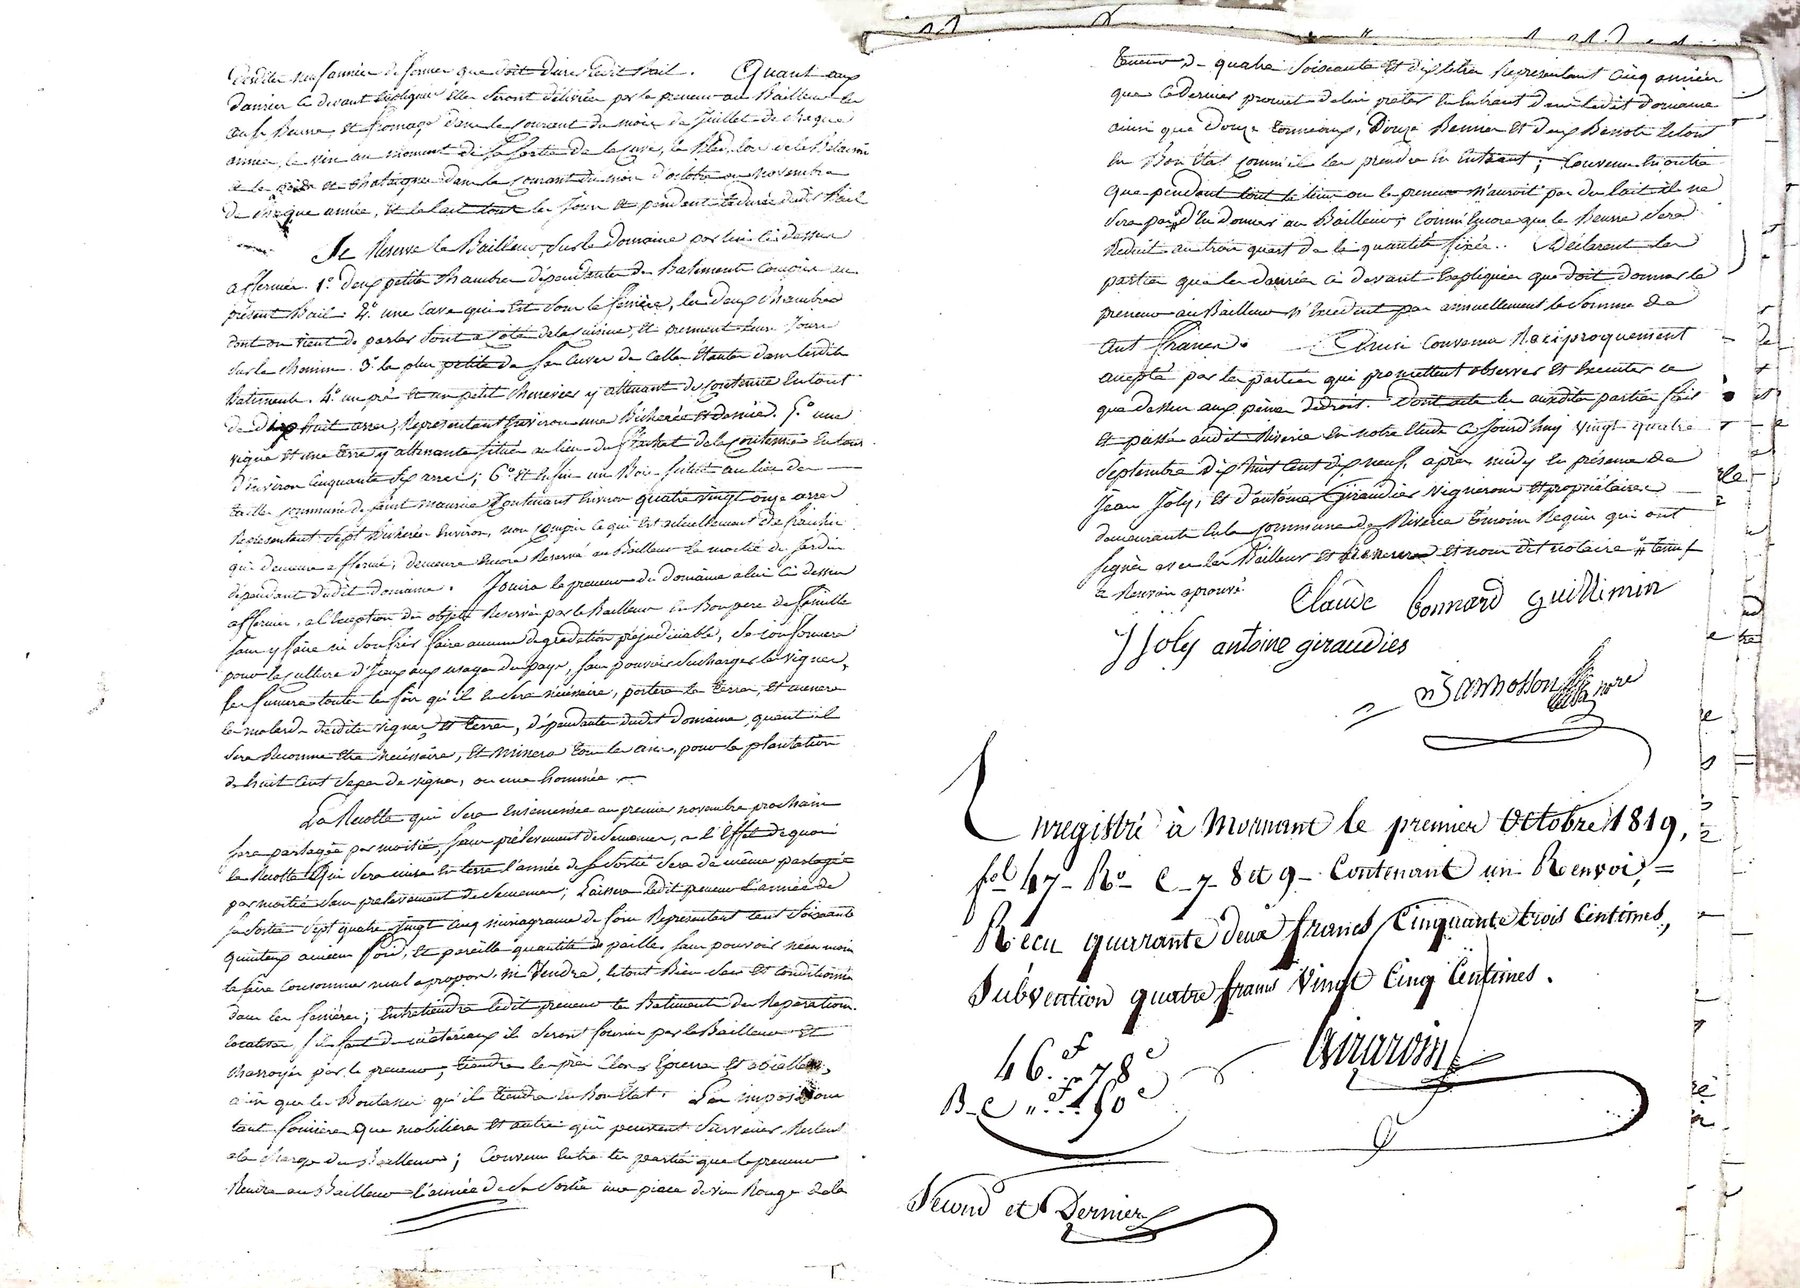 desdites six années de ferme que doit durer ledit Bail. Quant aux
danrées ci devant expliquées elles seront délivrées par le preneur au Bailleur les
œufs Beurre et fromage dans le courant du mois de Juillet de chaque
année, le vin au moment de la sortie de la cuve, le Bled, lors de
de chataignes dans le courant du mois d'octobre ou Novembre
de chaque année, et le lait tout les jours et pendant la durée dudit Bail
Se Reserve le Bailleur, sur le domaine par lui ci dessus
affermé. 1º. deux petites Chambres dépendantes des Batiments compris au
présent Bail. 2º. une cave qui est sous le fenière, les deux Chambres
dont on vient de parler sont a coté de la cuisine, et prennent leur Jours
sur le Chemin. 3º. la plus petite des cuves de celles étantes dans lesdits
Batiments. 4º. un pré et un petit chenevier y attenant de contenue en tout
de dix huit ares, Representant environ une Bicherée et demie. 5º. une
vigne et une terre y attenante située au lieu du de la contenue en tout
d'environ cinquante six ares; 6º. et enfin un Bois situé au lieu de
commune de saint maurice Contenant environ quatre vingt onze ares
Représentant sept bicherées environ, non compris ce qui est actuellement de
qui demeure affermé; demeure encore Reservé au Bailleur la moitié du Jardin
dépendant dudit domaine. Jouira le preneur du domaine a lui ci dessus
affermé, a l'exception des objets Reservés par le Bailleur en Bon pere de famille
sans y faire ni souffrir faire aucune degradation préjudiciable, se conformera
pour la culture d'Iceux aux usages du pays, sans pouvoir surcharger les vignes,
les fumera toutes les fois qu'il en sera nécessaire, portera les terres, et
desdites vignes, et terres, dépendantes dudit domaine, quant il
sera Reconnu etre nécessaire, et minera tous les ans, pour la plantation
de huit cent seps de vignes, ou une hommée.
La Recolte qui sera ensemensée au premier novembre prochain
sera partagée par moitié, sans prélevement de semences, a l'effet de quoi
la Recolte qui sera mise en terre l'année de sa sortie sera de même partagée
par moitié sans prelevement de semences; Laissera ledit preneur l'année de
sa sortie sept quatre vingt cinq miriagrames de foin Représentant cent soixante
quinteaux ancien Poid, et pareille quantité de paille, sans pouvoir néenmoin
le faire consommer mal a propos, ni Vendre, le tout Bien sec et conditionné
dans les fenières; Entretiendra ledit preneur les Batiments des Reparations
locatives s'il faut des matériaux il seront fournis par le Bailleur et
charroyés par le preneur, tiendra les prés Clos Epierrés et
ainsi que les Boutasses qu'il tiendra en Bon Etat. Les impositions
tant foncière que mobilière et autre qui peuvent survenir Restent
a la charge du Bailleur; Convenu Entre les parties que le preneur
Rendra au Bailleur l'année de sa sortie une piece de vin Rouge de la
teneur de quatre soixante et dix litres Représentant cinq années
que ce dernier promet de lui préter en Entrant dans ledit domaine
ainsi que douze tonneaux, Douze Bennes et deux Benots le tout
en Bon Etat comme il les prendra en Entrant; Convenu en outre
que pendant tout le tems ou le preneur n'auroit pas du lait il ne
sera pas d'en donner au Bailleur, comme Encore que le Beurre sera
Reduit au trois quart de la quantité fixée. Déclarent les
parties que les danrées ci devant Expliquées que doit donner le
preneur au Bailleur n'Excedent pas annuellement la somme de
cent francs. Ainsi convenu Réciproquement
accepté par les parties qui promettent observer et executer ce
que dessus aux peines de droit. Dont acte les susdites parties fait
et passé audit Riverie en notre Etude ce Jourd'huy vingt quatre
septembre dix huit cent dix neuf, après midy en présence de
Jean Joly, et d'antoine Giraudier vignerons et propriétaires
demeurants en la commune de Riverie témoins Requis qui ont
signés avec les Bailleur et preneur et nous dit notaire tenu
le Renvoi aprouvé.
Claude bonnard guillimin
J Joly antoine giraudier
nre
Enregistré à Mornant le premier Octobre 1819,
fol 47 Ro C 7 8 et 9 Contenant un Renvoi,
Reçu quarante deux francs Cinquante trois Centimes,
Subvention quatre francs Vingt Cinq Centimes.
46f 78c
B C " f 50c
Second et Dernier